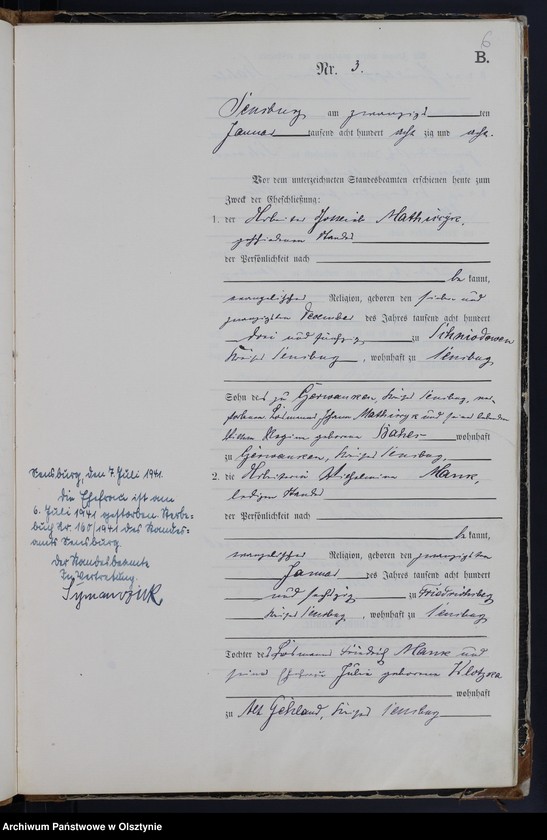 6
B.
Nr. 3.
Sensburg am zwanzigsten
Januar tausend acht hundert acht zig und acht.
Vor dem unterzeichneten Standesbeamten erschienen heute zum
Zweck der Eheschließung:
1. der Arbeiter Mathiszyk,
geschiedenen Standes
der Persönlichkeit nach
be kannt,
evangelischer Religion, geboren den sieben und
zwanzigsten Dezember des Jahres tausend acht hundert
drei und fünfzig zu Schniodowen
Kreis Sensburg, wohnhaft zu Sensburg,
Sohn des zu Gerwanken, Kreis Sensburg, ver-
storbenen Losmanns Johann und seiner
geborene wohnhaft
zu Gerwanken, Kreis Sensburg,
2. die Arbeiterin Wilhelmine Mank,
ledigen Standes
der Persönlichkeit nach
be kannt,
evangelischer Religion, geboren den zwanzigsten
Januar des Jahres tausend acht hundert
und sechzig zu Friedrichsberg
Kreis Sensburg, wohnhaft zu Sensburg
Tochter des Losmanns Friedrich Mank und
seiner Ehefrau Julie geborene Klotzka
wohnhaft
zu Alt Gehland, Kreis Sensburg
Sensburg, den 7. Juli 1941.
Die Ehefrau ist am
6. Juli 1941 gestorben. Sterbe-
buch Nr. 160/1941 des Standes-
amts Sensburg.
Der Standesbeamte
In Vertretung:
Symanzik
Archiwum Państwowe w Olsztynie